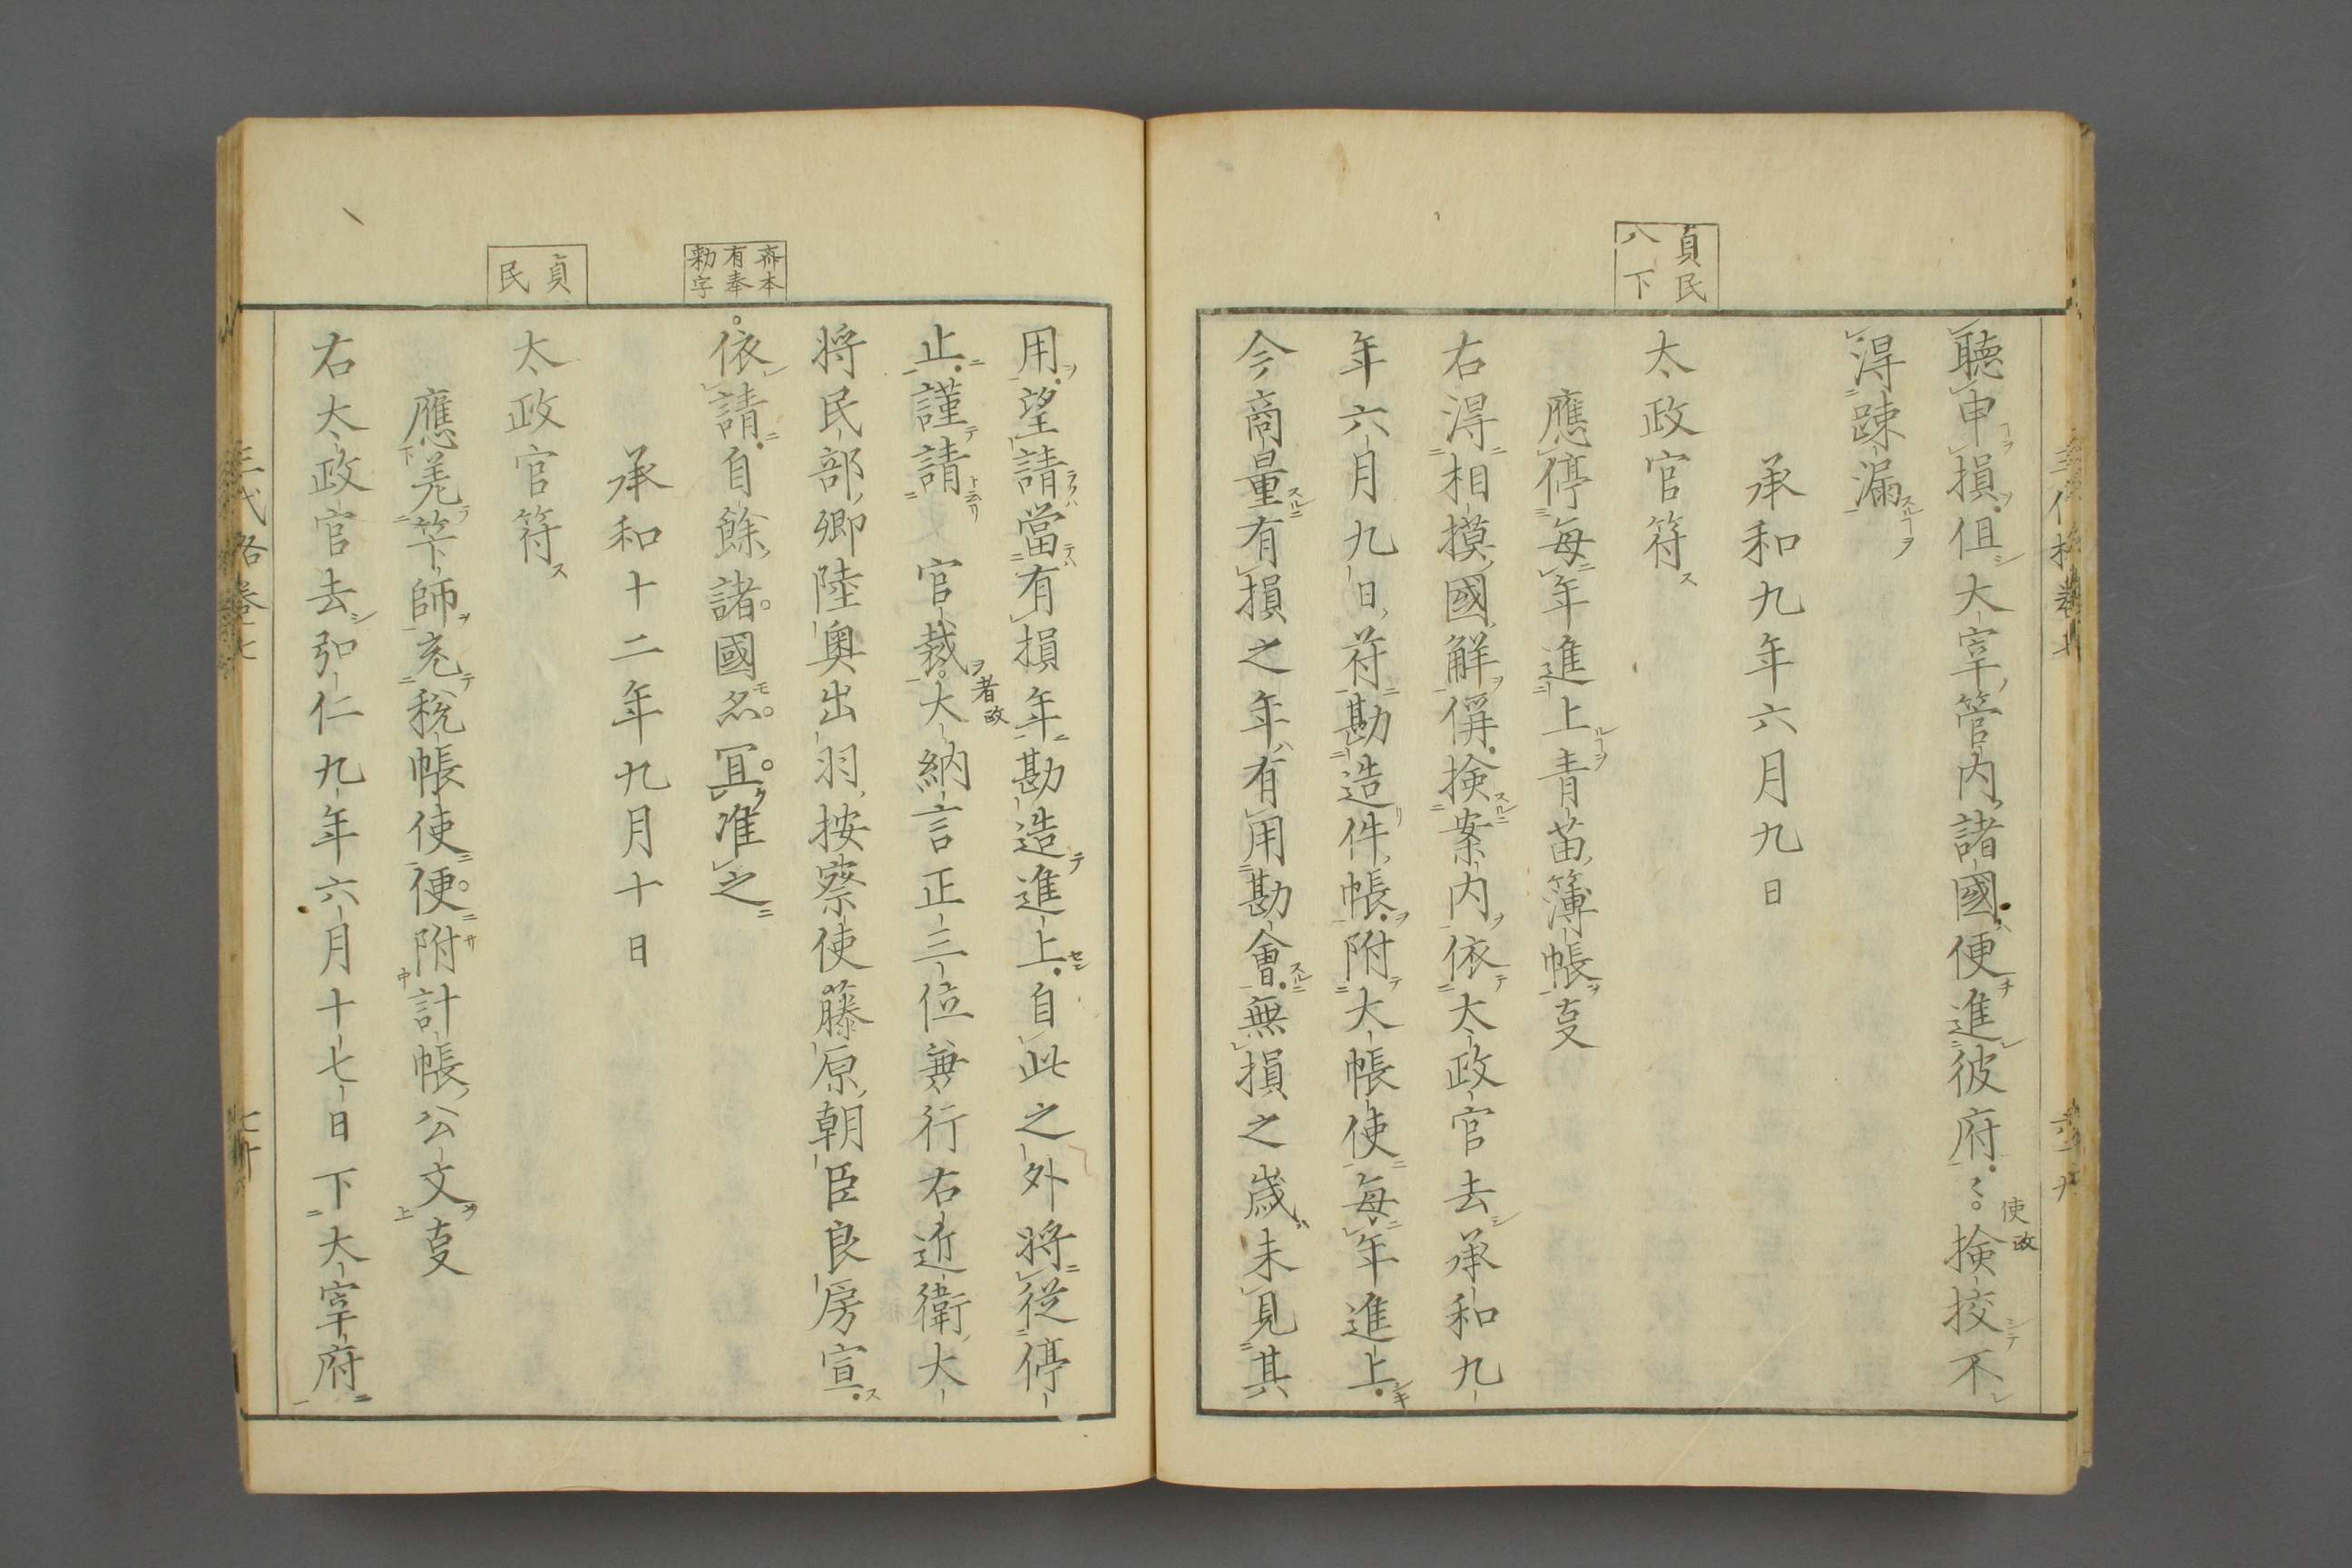 貞民
八下
聴申損但大宰管内諸國便進彼府〻検挍不
使改
得踈漏
承和九年六月九日
太政官符
應停毎年進上青苗簿帳㕝
右得相摸國解偁検案内依太政官去承和九
年六月九日符勘造件帳附大帳使毎年進上
今商量有損之年有用勘會無損之歳未見其
用望請當有損年勘造進上自此之外将従停
止謹請官裁大納言正三位兼行右近衛大
者改
将民部卿陸奥出羽按察使藤原朝臣良房宣
斎本
有奉
勅字
依請自餘諸國名冝准之
承和十二年九月十日
貞
民
太政官符
應差竿師充税帳使便附計帳公文㕝
右太政官去弘仁九年六月十七日下大宰府
三代格巻七